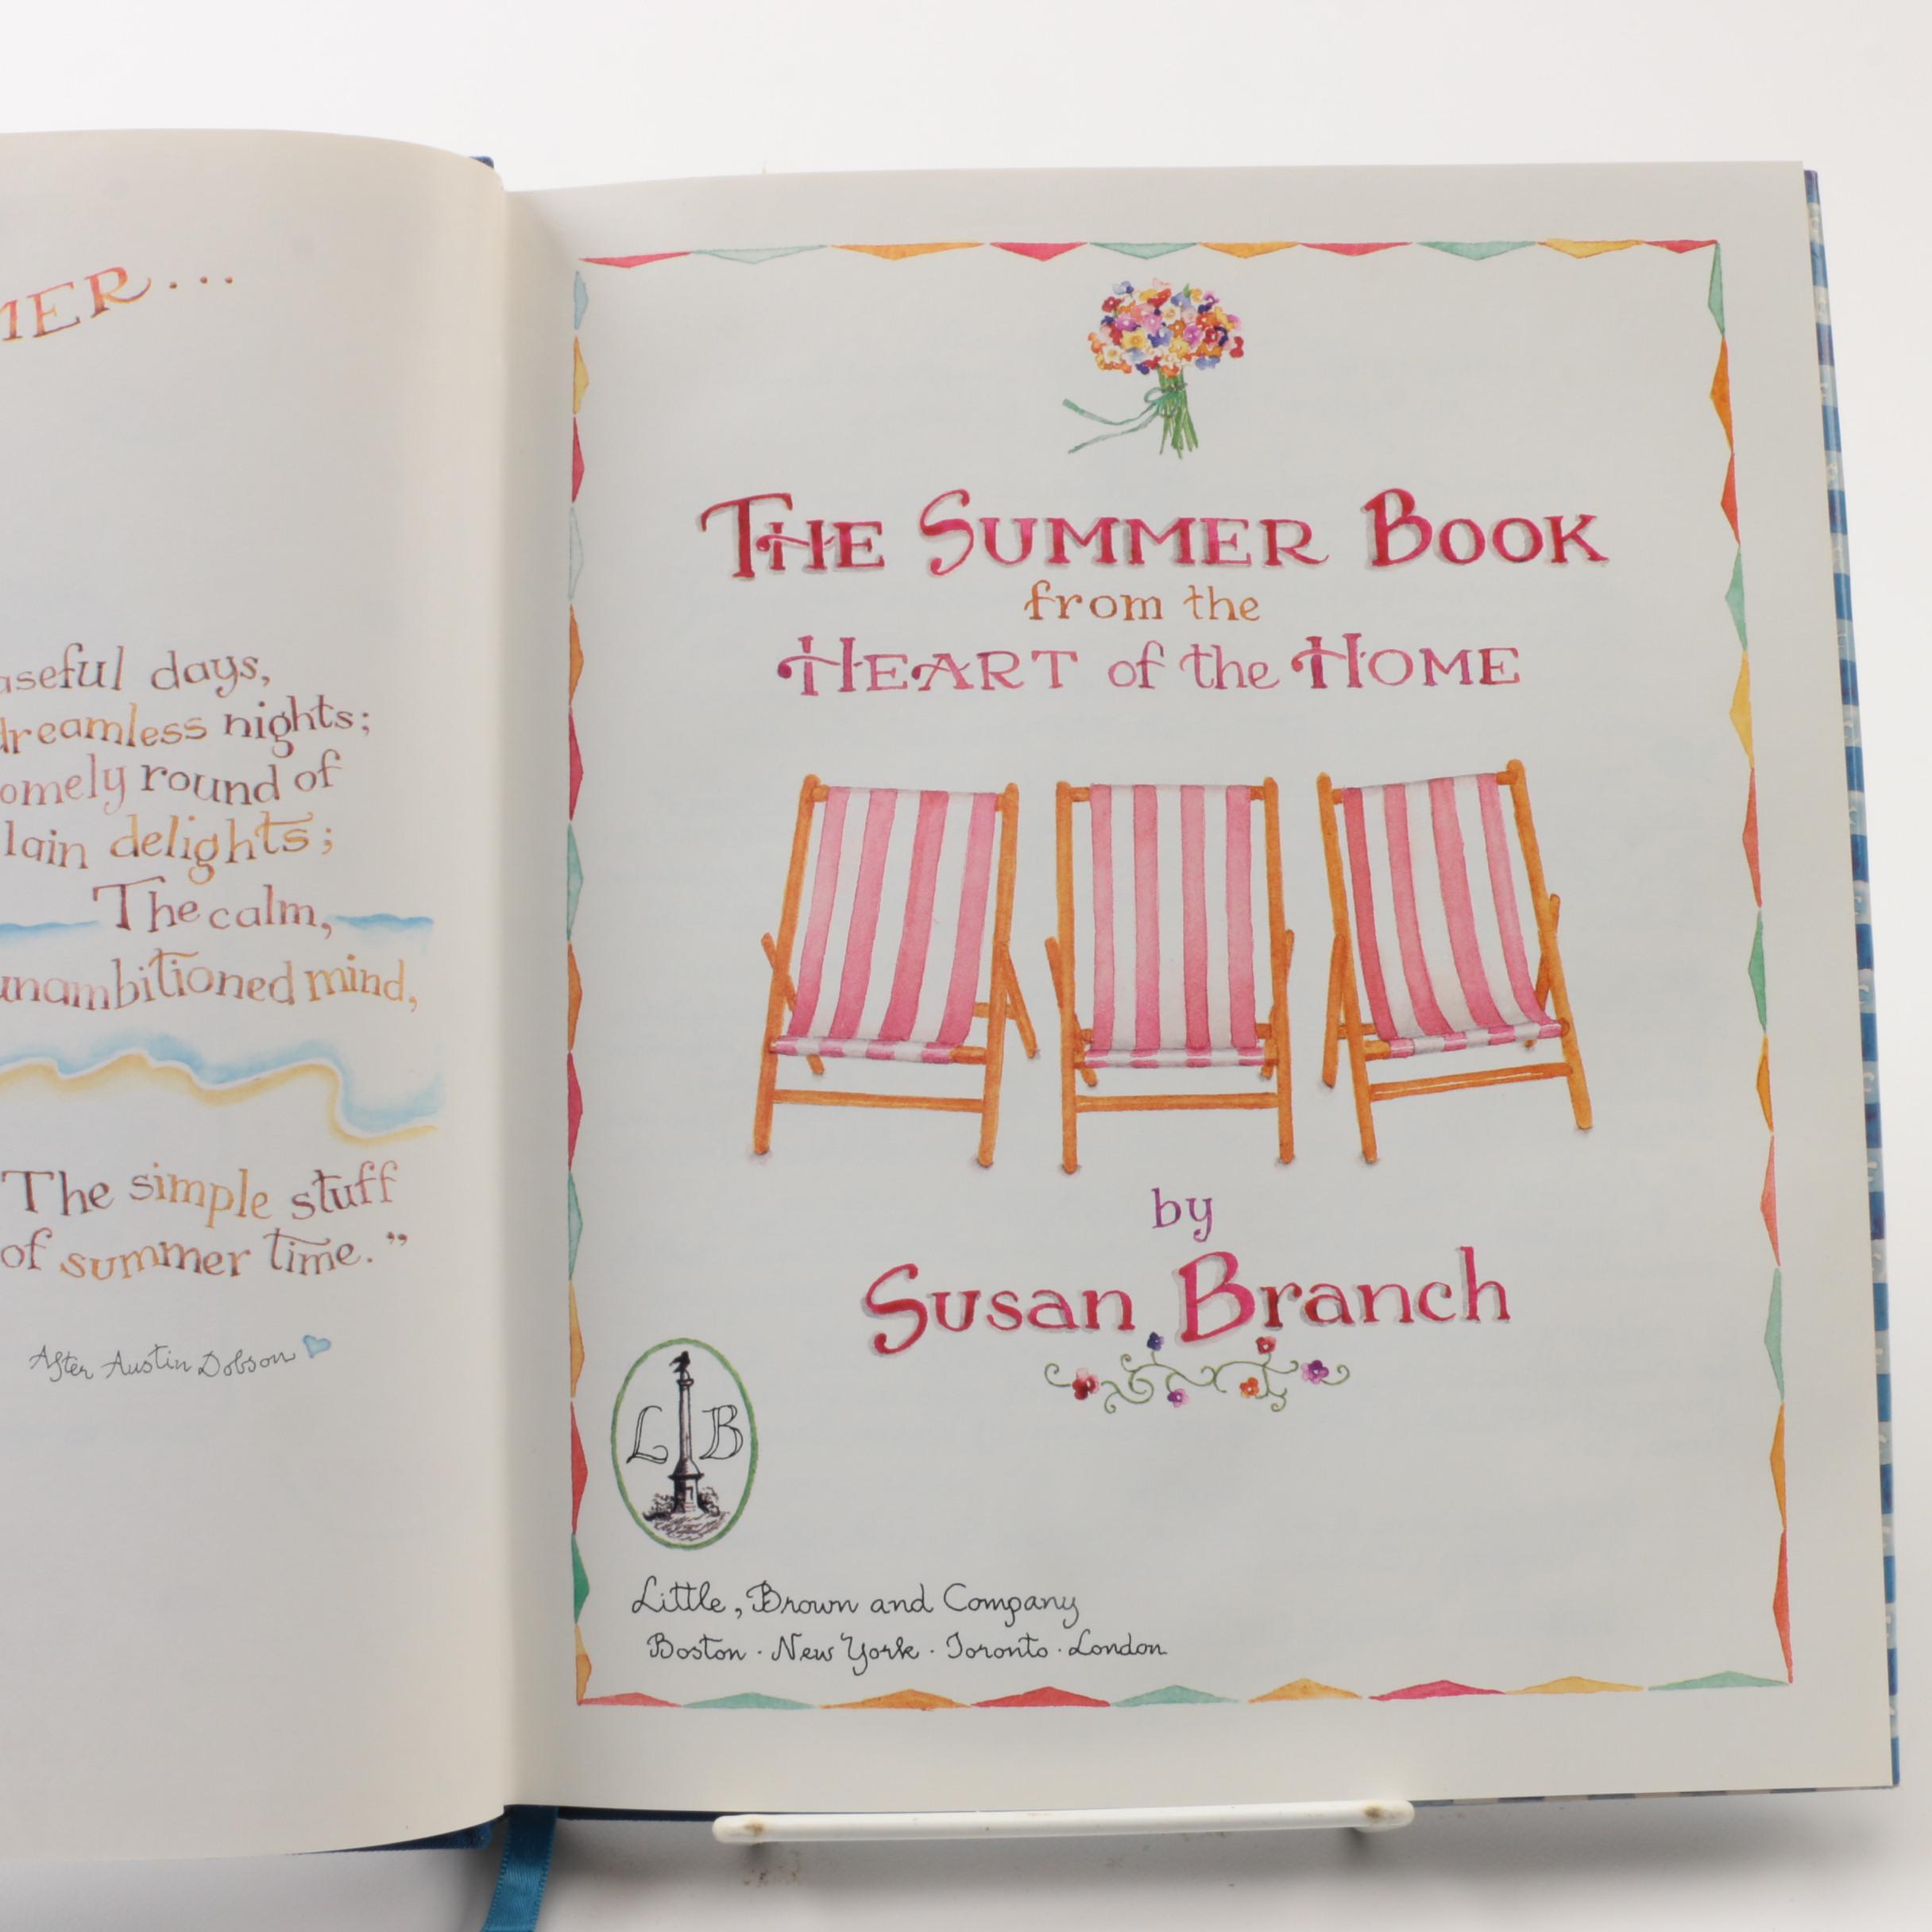 days,
dreamless nights;
round of
delights;
The calm,
unambitioned mind,
The simple stuff
of summer time.”
After Austin Dobson
THE SUMMER BOOK
from the
HEART of the HOME
by
Susan Branch
L B
Little, Brown and Company
Boston · New York · Toronto · London